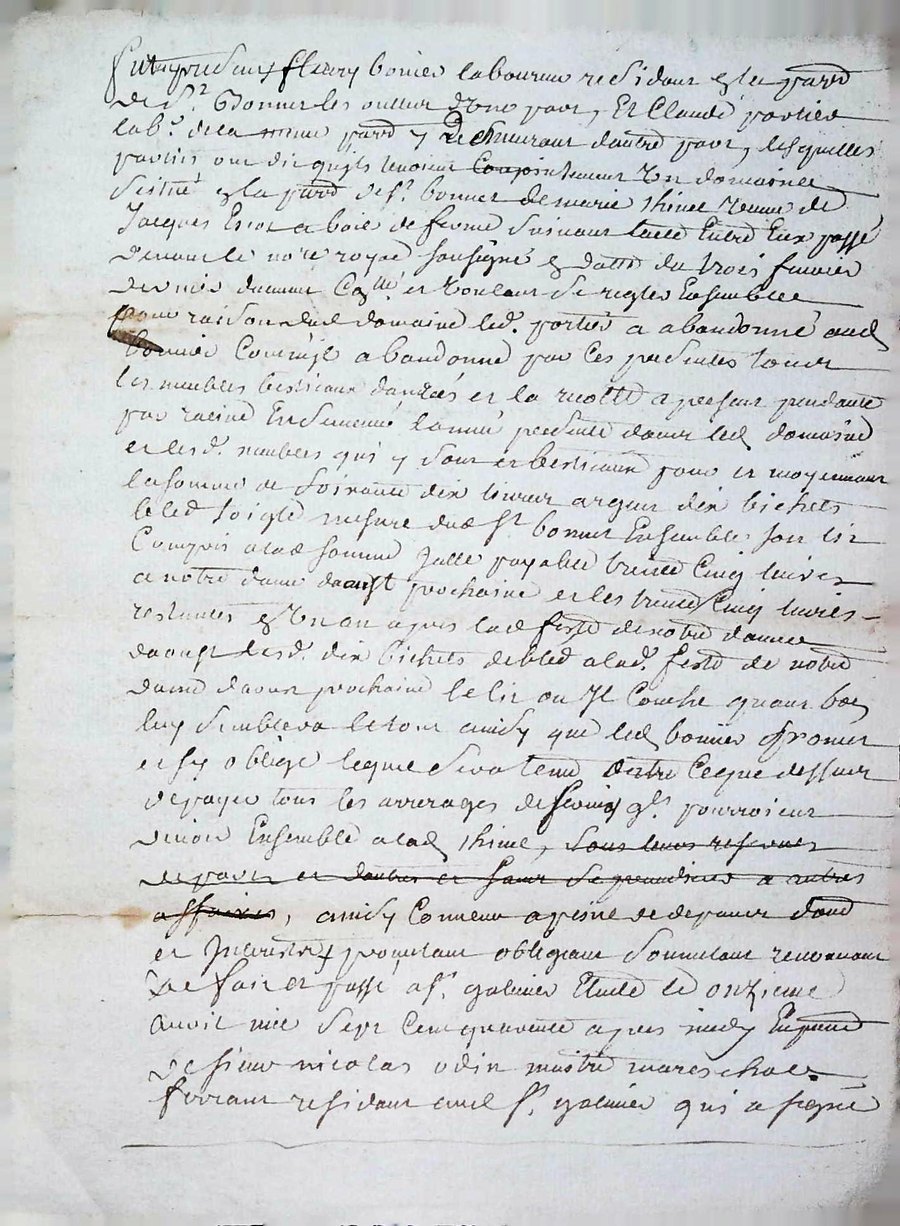 furent presents fleury bonier laboureur residant en la parr
de st bonnet les oulles d'une part, Et Claude partier
labr. de la meme parr y demeurant dautre part, lesquelles
parties ont dit quils tenoient Conjointement un domaine
scitué en la parr de st. bonnet de marie thinet veuve de
Jacques a baie de ferme suivant lacte Entre Eux passé
devant le nore royal soussigné en datte du trois fevrier
dernier et voulant se regler Ensemble
pour raison dud domaine led. partier a abandonné aud
bonnier Comme il abandonne par ces presentes tous
les meubles bestiaux danrées et la recolte a present pendante
par racine Ensemencé lannée presente dans led domaine
et lesd. meubles qui y sont et bestiaux pour et moyennant
la somme de soixante dix livres argent dix bichets
bled soigle mesure dud st bonnet Ensemble son lit
Compris a lad somme Icelle payable trente Cinq livres
a notre dame daoust prochaine et les trente Cinq livres
restantes En un an apres lad feste de notre dame
daoust lesd. dix bichets de bled a lad. feste de notre
dame daoust prochaine le lit ou Il Couche quant bon
luy semblera le tout ainsy que led bonnier promet
et sy oblige lequel sera tenu outre ce que dessus
de payer tous les arrerages de ferme qls pourroient
devoir Ensemble a lad thinet, sous leurs reserves
de et dautres et sans se prejudicier a autres
affaires, ainsy Convenu a peine de depens dom
et Interests, promettant obligeant soumettant renonceant
de fait et passé a st. galmier Etude le onzieme
avril mil sept Cent quarante apres midy En presence
de sieur nicolas odin maitre mareschal
ferrant residant aud st. galmier qui a signé